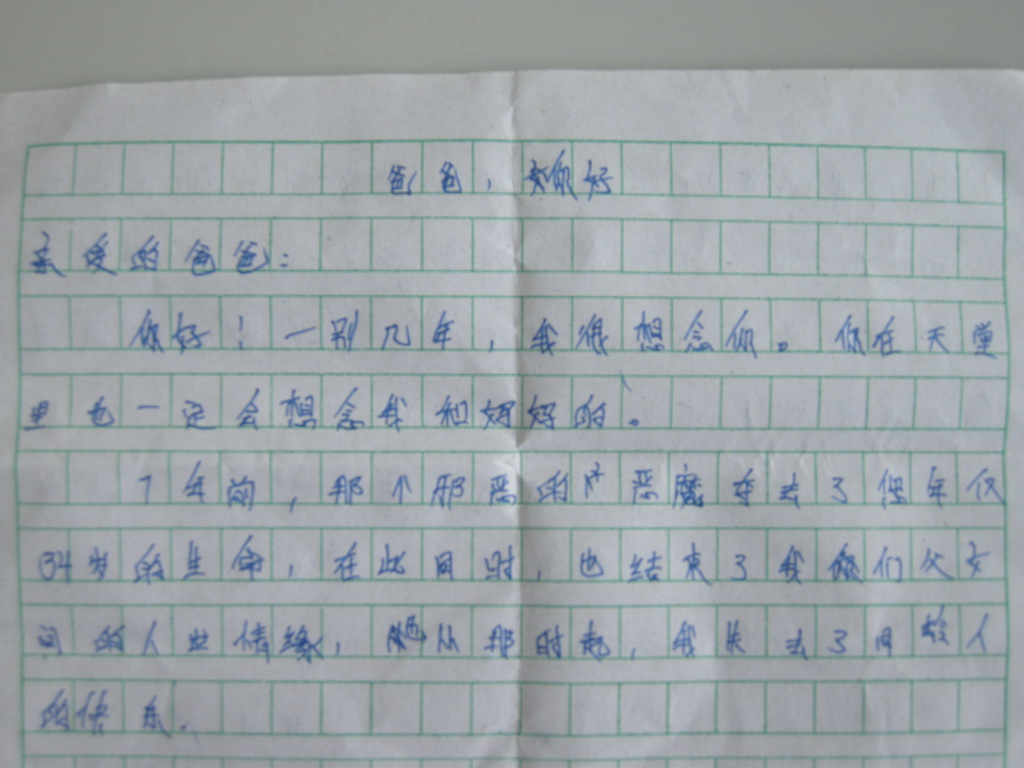 爸爸，你好
亲爱的爸爸：
你好！一别几年，我很想念你。你在天堂
里也一定会想念我和妈妈的。
7年前，那个邪恶的恶魔夺去了您年仅
34岁的生命，在此同时，也结束了我们父女
间的人世情缘，也从那时起，我失去了同龄人
的快乐.